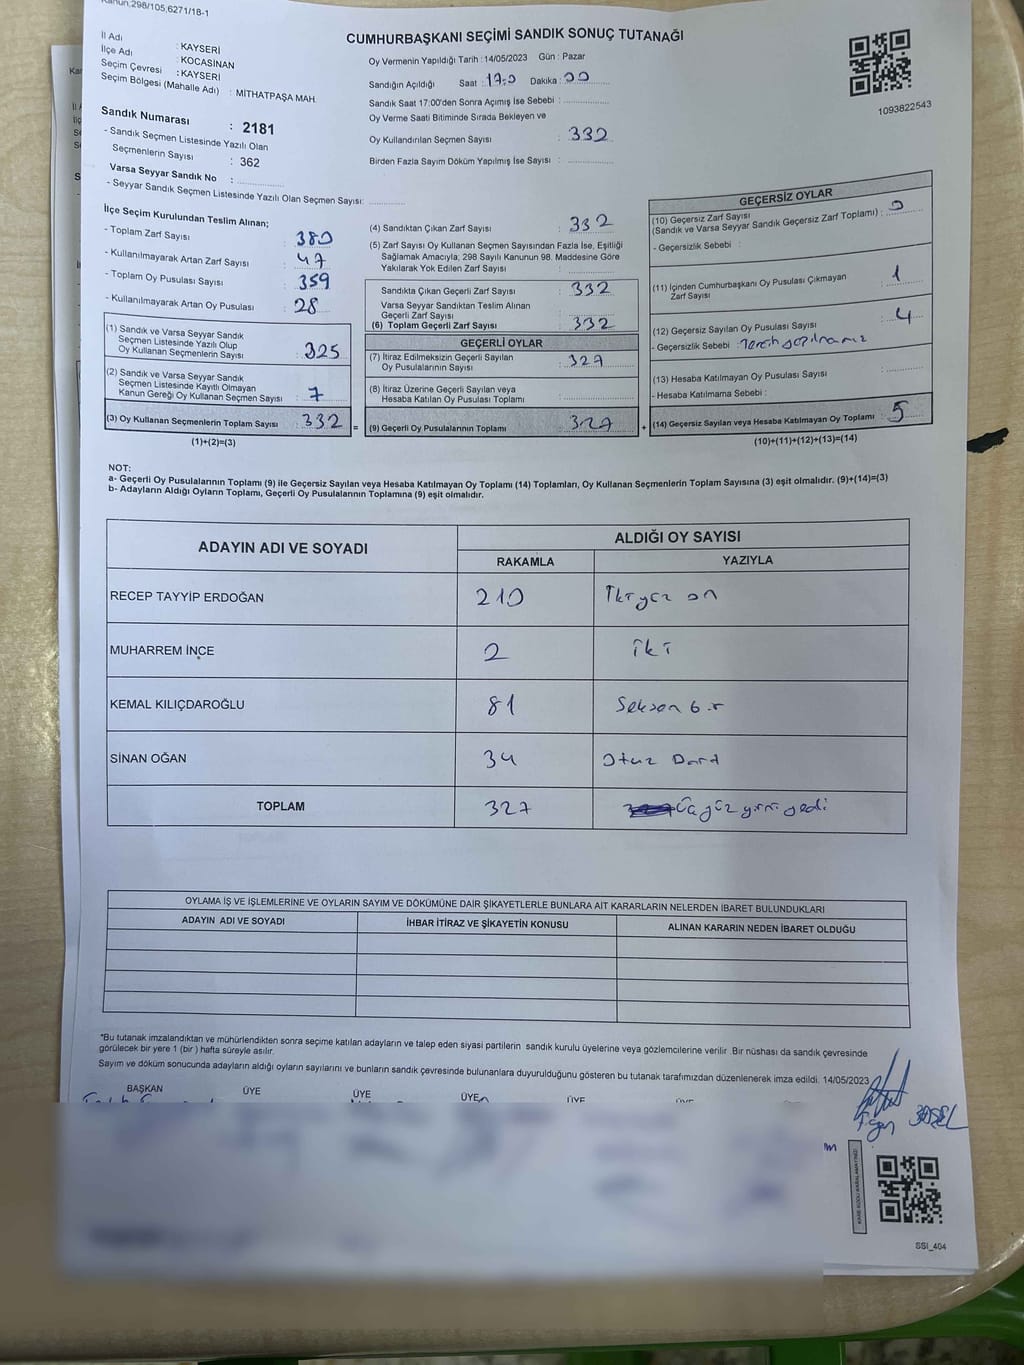 Kanun,298/105,6271/18-1
CUMHURBAŞKANI SEÇİMİ SANDIK SONUÇ TUTANAĞI
İl Adı : KAYSERİ
İlçe Adı : KOCASİNAN
Seçim Çevresi : KAYSERİ
Seçim Bölgesi (Mahalle Adı) : MİTHATPAŞA MAH.
Sandık Numarası : 2181
- Sandık Seçmen Listesinde Yazılı Olan
Seçmenlerin Sayısı : 362
Varsa Seyyar Sandık No :
- Seyyar Sandık Seçmen Listesinde Yazılı Olan Seçmen Sayısı:
Oy Vermenin Yapıldığı Tarih : 14/05/2023 Gün : Pazar
Sandığın Açıldığı Saat : 17.0 Dakika : 00
Sandık Saat 17:00'den Sonra Açımış İse Sebebi :
Oy Verme Saati Bitiminde Sırada Bekleyen ve
Oy Kullandırılan Seçmen Sayısı : 332
Birden Fazla Sayım Döküm Yapılmış İse Sayısı :
1093822543
İlçe Seçim Kurulundan Teslim Alınan;
- Toplam Zarf Sayısı : 380
- Kullanılmayarak Artan Zarf Sayısı : 47
- Toplam Oy Pusulası Sayısı : 359
- Kullanılmayarak Artan Oy Pusulası : 28
(1) Sandık ve Varsa Seyyar Sandık
Seçmen Listesinde Yazılı Olup
Oy Kullanan Seçmenlerin Sayısı : 325
(2) Sandık ve Varsa Seyyar Sandık
Seçmen Listesinde Kayıtlı Olmayan
Kanun Gereği Oy Kullanan Seçmen Sayısı : 7
(3) Oy Kullanan Seçmenlerin Toplam Sayısı : 332
(1)+(2)=(3)
(4) Sandıktan Çıkan Zarf Sayısı : 332
(5) Zarf Sayısı Oy Kullanan Seçmen Sayısından Fazla İse, Eşitliği
Sağlamak Amacıyla; 298 Sayılı Kanunun 98. Maddesine Göre
Yakılarak Yok Edilen Zarf Sayısı :
Sandıkta Çıkan Geçerli Zarf Sayısı : 332
Varsa Seyyar Sandıktan Teslim Alınan
Geçerli Zarf Sayısı :
(6) Toplam Geçerli Zarf Sayısı : 332
GEÇERLİ OYLAR
(7) İtiraz Edilmeksizin Geçerli Sayılan
Oy Pusulalarının Sayısı : 327
(8) İtiraz Üzerine Geçerli Sayılan veya
Hesaba Katılan Oy Pusulası Toplamı :
= (9) Geçerli Oy Pusulalarının Toplamı : 327 +
GEÇERSİZ OYLAR
(10) Geçersiz Zarf Sayısı
(Sandık ve Varsa Seyyar Sandık Geçersiz Zarf Toplamı) : 0
- Geçersizlik Sebebi :
(11) İçinden Cumhurbaşkanı Oy Pusulası Çıkmayan
Zarf Sayısı : 1
(12) Geçersiz Sayılan Oy Pusulası Sayısı : 4
- Geçersizlik Sebebi :
(13) Hesaba Katılmayan Oy Pusulası Sayısı :
- Hesaba Katılmama Sebebi :
(14) Geçersiz Sayılan veya Hesaba Katılmayan Oy Toplamı : 5
(10)+(11)+(12)+(13)=(14)
NOT:
a- Geçerli Oy Pusulalarının Toplamı (9) ile Geçersiz Sayılan veya Hesaba Katılmayan Oy Toplamı (14) Toplamları, Oy Kullanan Seçmenlerin Toplam Sayısına (3) eşit olmalıdır. (9)+(14)=(3)
b- Adayların Aldığı Oyların Toplamı, Geçerli Oy Pusulalarının Toplamına (9) eşit olmalıdır.
ADAYIN ADI VE SOYADI ALDIĞI OY SAYISI
RAKAMLA YAZIYLA
RECEP TAYYİP ERDOĞAN 210 İkiyüz on
MUHARREM İNCE 2 iki
KEMAL KILIÇDAROĞLU 81 Seksen bir
SİNAN OĞAN 34 Otuz Dört
TOPLAM 327 üçyüz yirmi yedi
OYLAMA İŞ VE İŞLEMLERİNE VE OYLARIN SAYIM VE DÖKÜMÜNE DAİR ŞİKAYETLERLE BUNLARA AİT KARARLARIN NELERDEN İBARET BULUNDUKLARI
ADAYIN ADI VE SOYADI İHBAR İTİRAZ VE ŞİKAYETİN KONUSU ALINAN KARARIN NEDEN İBARET OLDUĞU
*Bu tutanak imzalandıktan ve mühürlendikten sonra seçime katılan adayların ve talep eden siyasi partilerin sandık kurulu üyelerine veya gözlemcilerine verilir .Bir nüshası da sandık çevresinde
görülecek bir yere 1 (bir ) hafta süreyle asılır.
Sayım ve döküm sonucunda adayların aldığı oyların sayılarını ve bunların sandık çevresinde bulunanlara duyurulduğunu gösteren bu tutanak tarafımızdan düzenlenerek imza edildi. 14/05/2023
BAŞKAN ÜYE ÜYE ÜYE ÜYE ÜYE
SSI_404